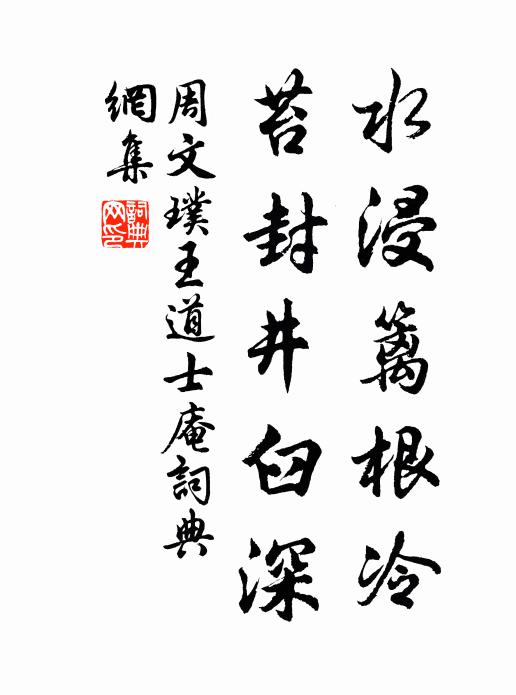 水浸篱根冷
苔封井臼深
周文璞王道士庵詞典
網集
詞典網印